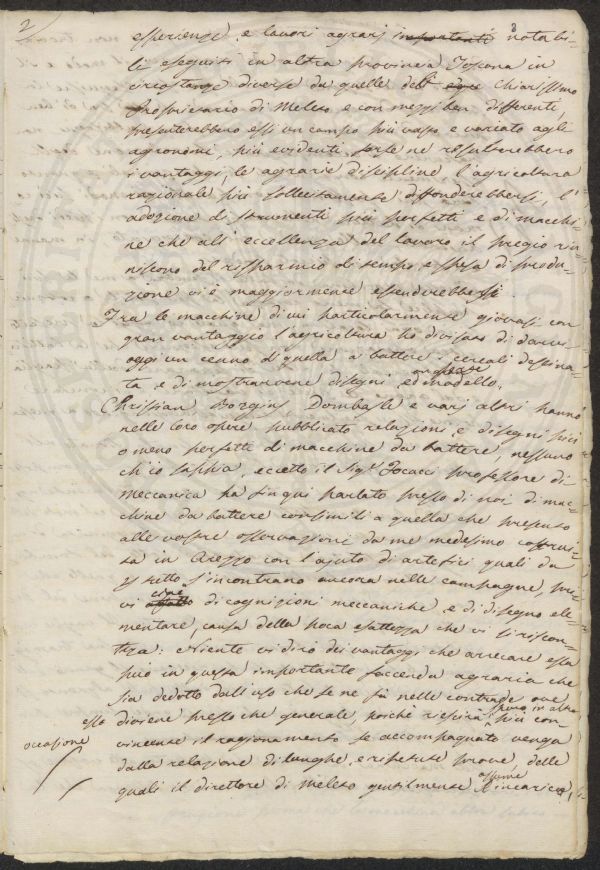 2
8
esperienze, e lavori agrarj importanti notabi-
li eseguiti in altra provincia Toscana in
circostanze diverse da quelle del chiarissimo
Proprietario di Meleto e con mezzi ben differenti,
presenterebbero essi un campo più vasto, e variato agli
agronomi, più evidenti forse ne resulterebbero
i vantaggi, le agrarie discipline l'agricoltura
razionale più sollecitamente diffonderebbersi, l'
adozione di strumenti più perfetti e di macchi-
ne che all'eccellenza del lavoro il pregio riu-
niscono del risparmio di tempo, e spesa di produ-
zione vi è maggiormente estenderebbesi
Fra le macchine di cui particolarmente giovasi con
gran vantaggio l'agricoltura ho divisato di darvi
oggi un cenno di quella a battere i cereali destina-
ta, e di mostrarvene disegni, ed modello.
Christian, Borgnis, Dombasle e varj altri hanno
nelle loro opere pubblicato relazioni, e disegni più
o meno perfetti di macchine da battere, nessuno
ch'io sappia, eccetto il Sigr. Tocacci professore di
Meccanica ha fin qui parlato presso di noi di mac-
chine da battere consimili a quella che presento
alle vostre osservazioni da me medesimo costrui-
ta in Arezzo con l'ajuto di artefici quali da
per tutto s'incontrano ancora nelle campagne, pri-
vi cioè di cognizioni meccaniche, e di disegno ele-
mentare, causa della poca esattezza che vi si riscon-
tra: Niente vi dirò dei vantaggi che arrecare essa
può in questa importante faccenda agraria che
sia dedotto dall'uso che se ne fà nelle contrade ove
esso diviene presso che generale, poichè riescirà spero in altra più con-
occasione
vincente il ragionamento se accompagnato venga
dalla relazione di lunghe, e ripetute prove, delle
quali il direttore di Meleto gentilmente assume l'incarico,